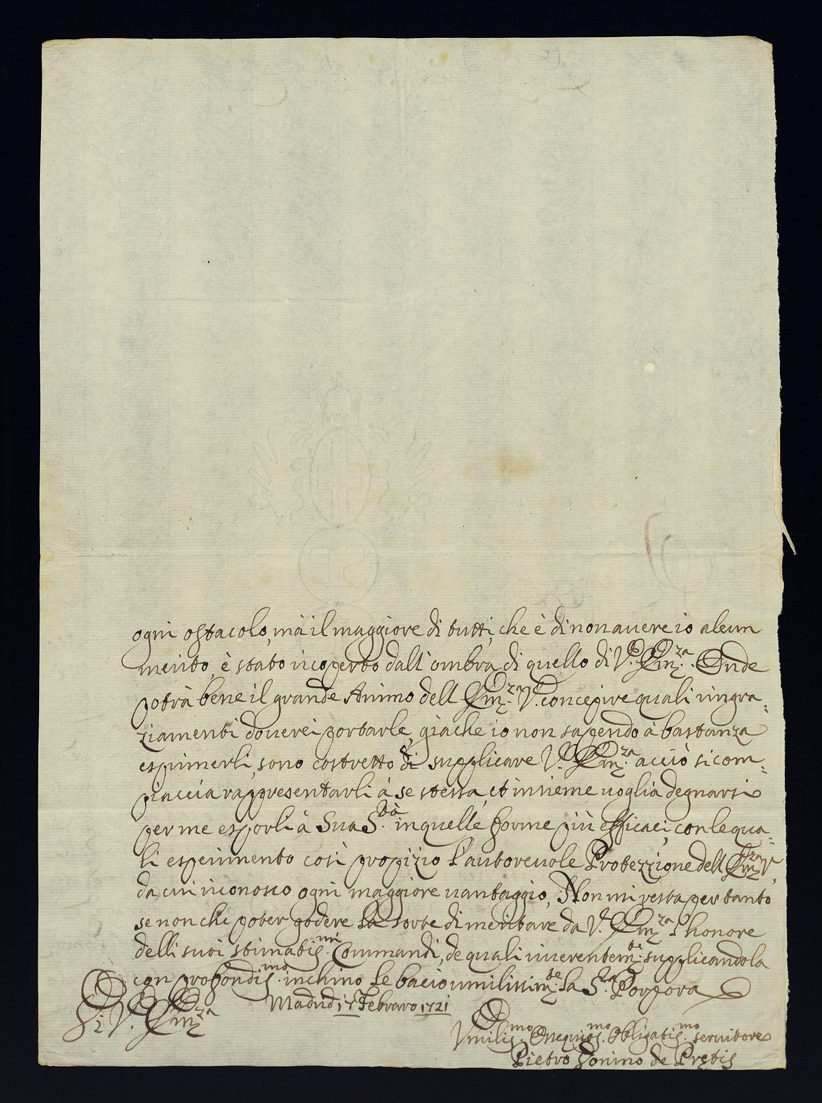 ogni ostacolo, mà il maggiore di tutti, che è di non avere io alcun
merito è stato ricoperto dall' ombra di quello di V.ª Em.za. Onde
potrà bene il grande Animo dell' Em.za V.ª concepire quali ringra-
ziamenti doverei portarle, giache io non sapendo à bastanza
esprimerli, sono costretto di supplicare V.ª Em.za acciò si com-
piaccia rappresentarli à se stessa, et insieme voglia degnarsi
per me esporli à Sua S.tà in quelle forme più efficaci, con le qua-
li esperimento così propizio l'autorevole Protezzione dell' Em.za V.ª
da cui riconosco ogni maggiore vantaggio, Non mi resta per tanto
se non che poter godere la sorte di meritare da V.ª Em.za l' honore
delli suoi stimatis.mi Commandi, de quali riverentem.te supplicandola
con profondis.mo inchino le bacio umilissim.te la S.ra Porpora
Di V.ª Em.za
Madrid 17 Febraro 1721
Vmilis.mo Ossequios.mo Obligatis.mo servitore
Pietro de Pretis